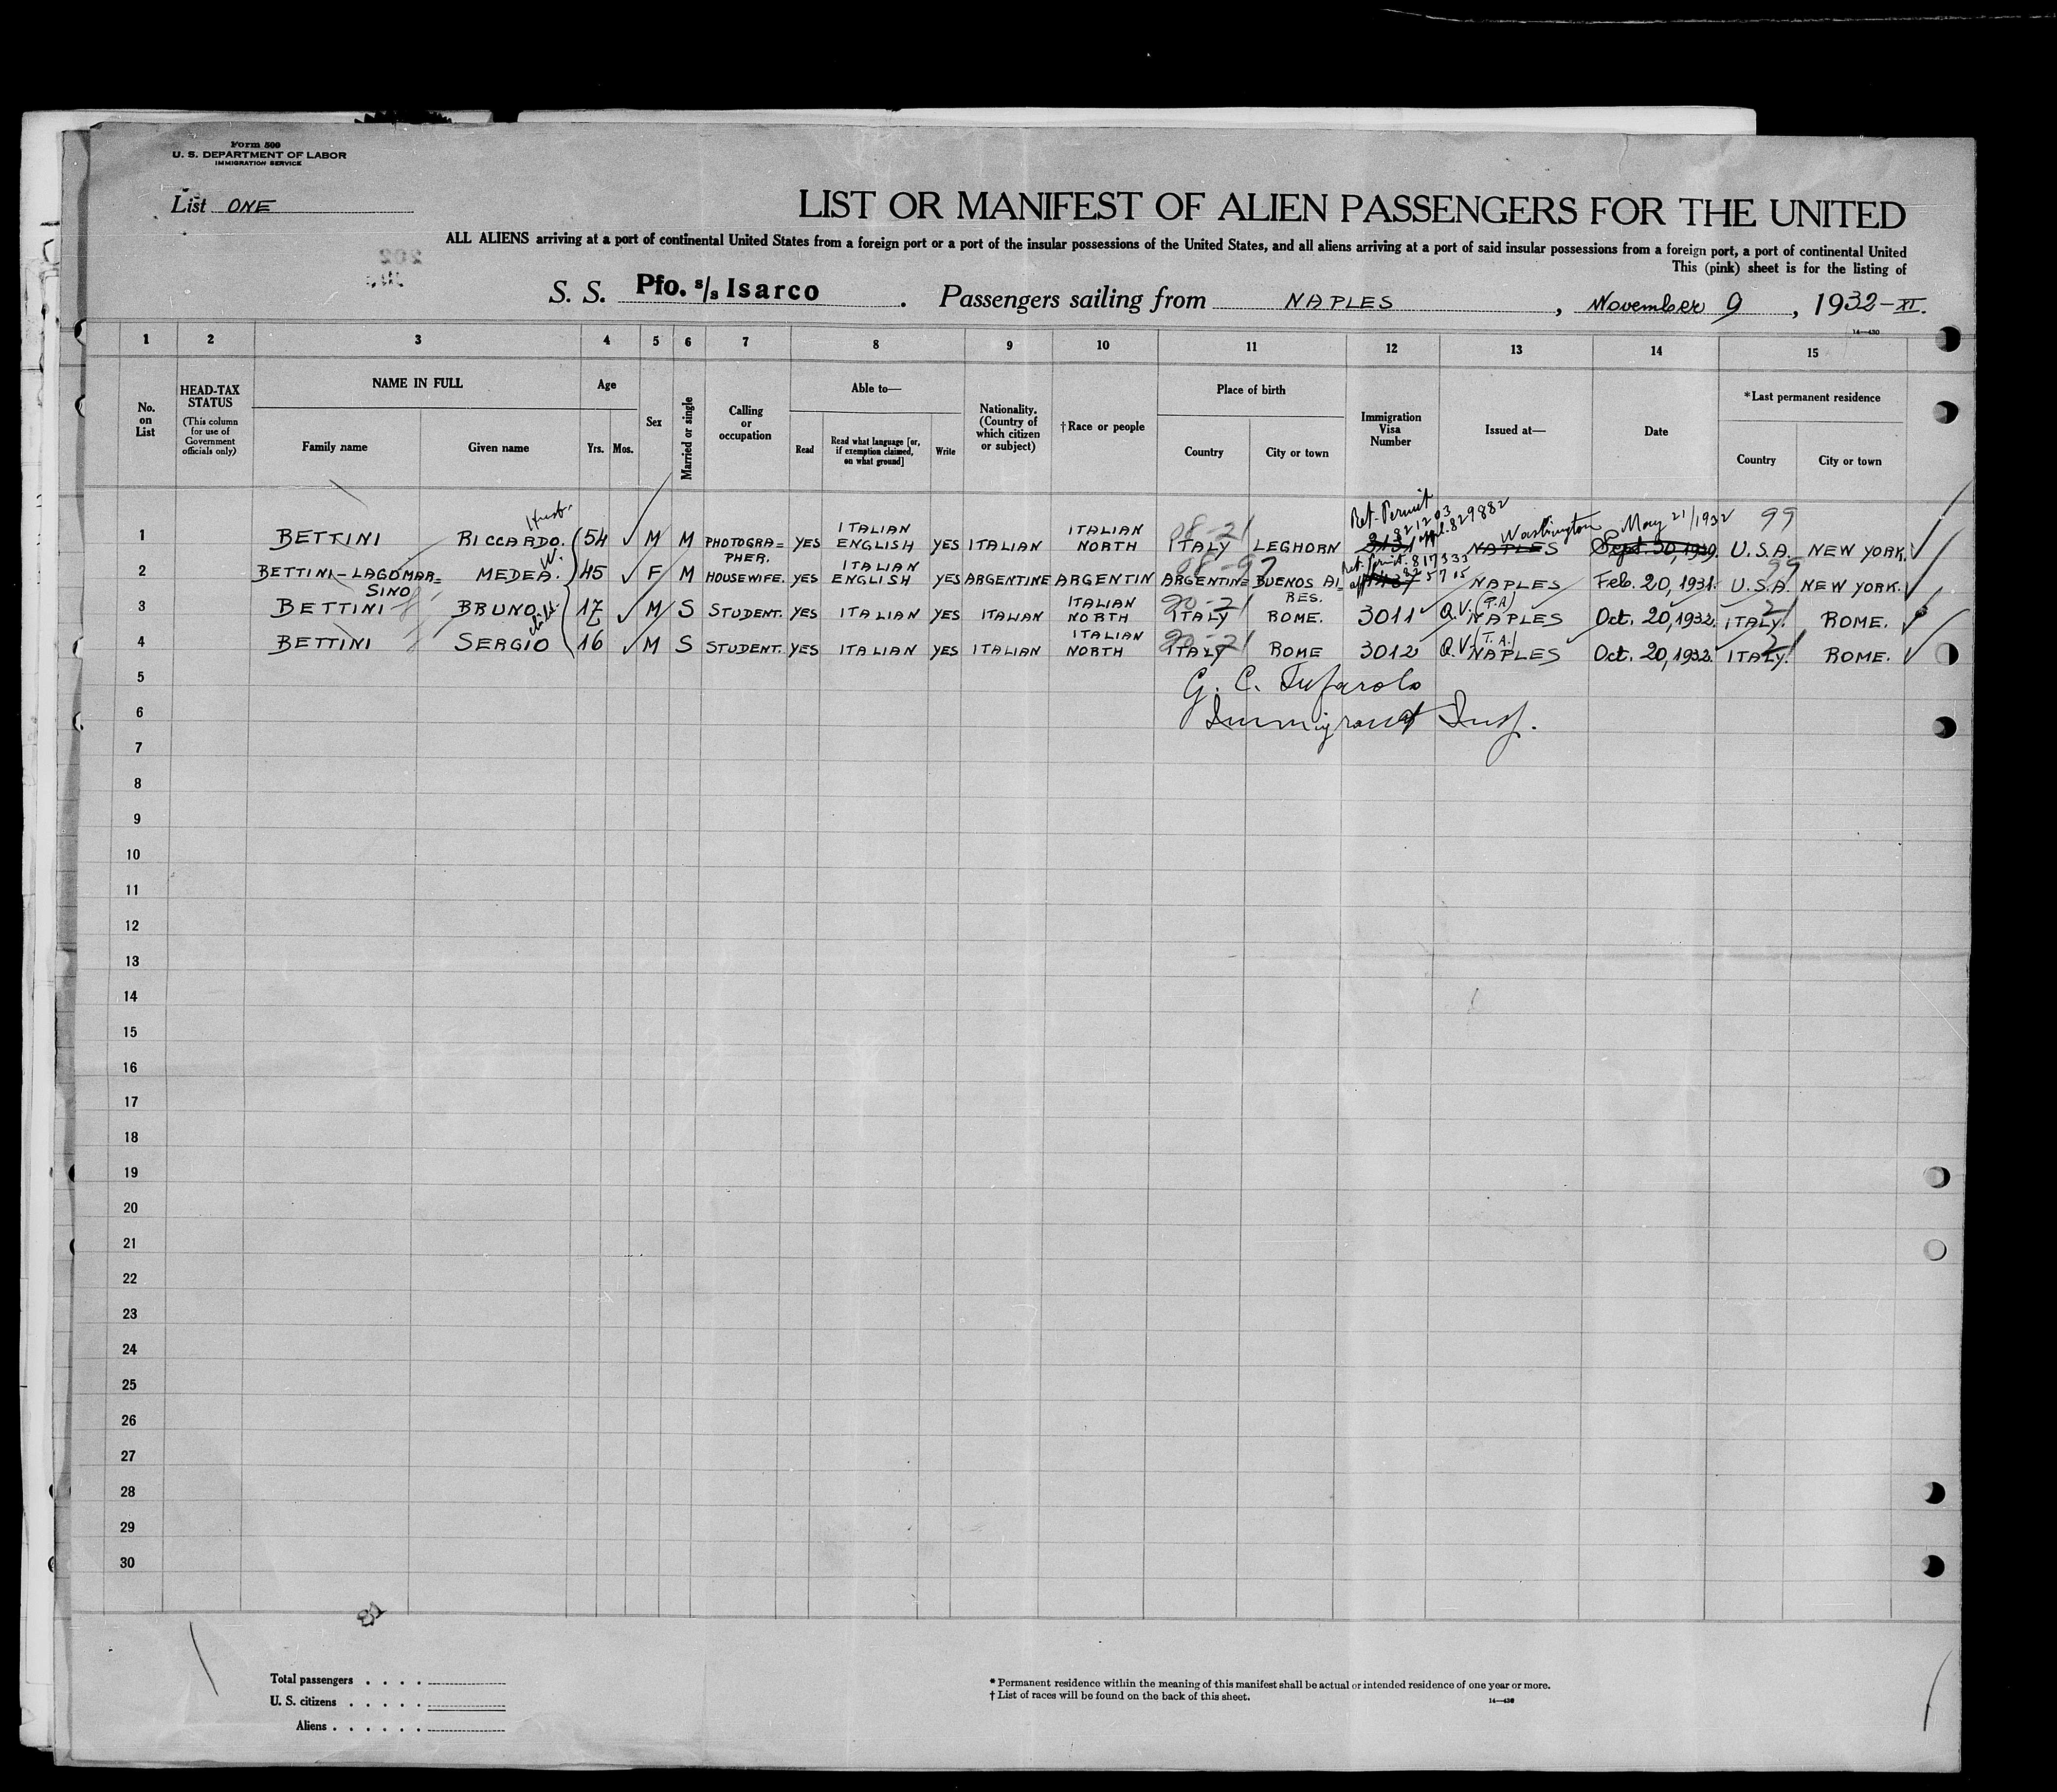 Form 500
U. S. DEPARTMENT OF LABOR
IMMIGRATION SERVICE
List ONE
LIST OR MANIFEST OF ALIEN PASSENGERS FOR THE UNITED
ALL ALIENS arriving at a port of continental United States from a foreign port or a port of the insular possessions of the United States, and all aliens arriving at a port of said insular possessions from a foreign port, a port of continental United
This (pink) sheet is for the listing of
202
S. S. Pfo. s/s Isarco . Passengers sailing from NAPLES , November 9 , 1932-XI.
14—430
1 2 3 4 5 6 7 8 9 10 11 12 13 14 15
No. on List
HEAD-TAX STATUS
(This column for use of Government officials only)
NAME IN FULL
Family name Given name
Age
Yrs. Mos.
Sex
Married or single
Calling or occupation
Able to—
Read
Read what language [or, if exemption claimed, on what ground]
Write
Nationality. (Country of which citizen or subject)
†Race or people
Place of birth
Country City or town
Immigration Visa Number
Issued at—
Date
*Last permanent residence
Country City or town
Husb. Ret. Permit 821203 appl. 829882 Washington May 21/1932 99
1 BETTINI RICCARDO. 54 M M PHOTOGRA=PHER. YES ITALIAN ENGLISH YES ITALIAN ITALIAN NORTH 08-21 ITALY LEGHORN 3131 NAPLES Sept. 30, 1929 U.S.A. NEW YORK.
W. 08-97 Ret. Permit. 817333 99
2 BETTINI-LAGOMAR=SINO MEDEA. 45 F M HOUSEWIFE. YES ITALIAN ENGLISH YES ARGENTINE ARGENTIN ARGENTIN= BUENOS AI=RES. NAPLES Feb. 20, 1931. U.S.A. NEW YORK.
3 BETTINI BRUNO. 17 M S STUDENT. YES ITALIAN YES ITALIAN ITALIAN NORTH 90-21 ITALY ROME. 3011 Q.V. NAPLES Oct. 20, 1932. ITALY. 21 ROME.
child
4 BETTINI SERGIO 16 M S STUDENT. YES ITALIAN YES ITALIAN ITALIAN NORTH 90-21 ITALY ROME 3012 Q.V. (T.A.) NAPLES Oct. 20, 1932. ITALY. 21 ROME.
5 G. C. Tufarolo
6 Immigrant Insp.
7
8
9
10
11
12
13
14
15
16
17
18
19
20
21
22
23
24
25
26
27
28
29
30
Total passengers . . . .
U. S. citizens . . . . .
Aliens . . . . . .
* Permanent residence within the meaning of this manifest shall be actual or intended residence of one year or more.
† List of races will be found on the back of this sheet.
14—430